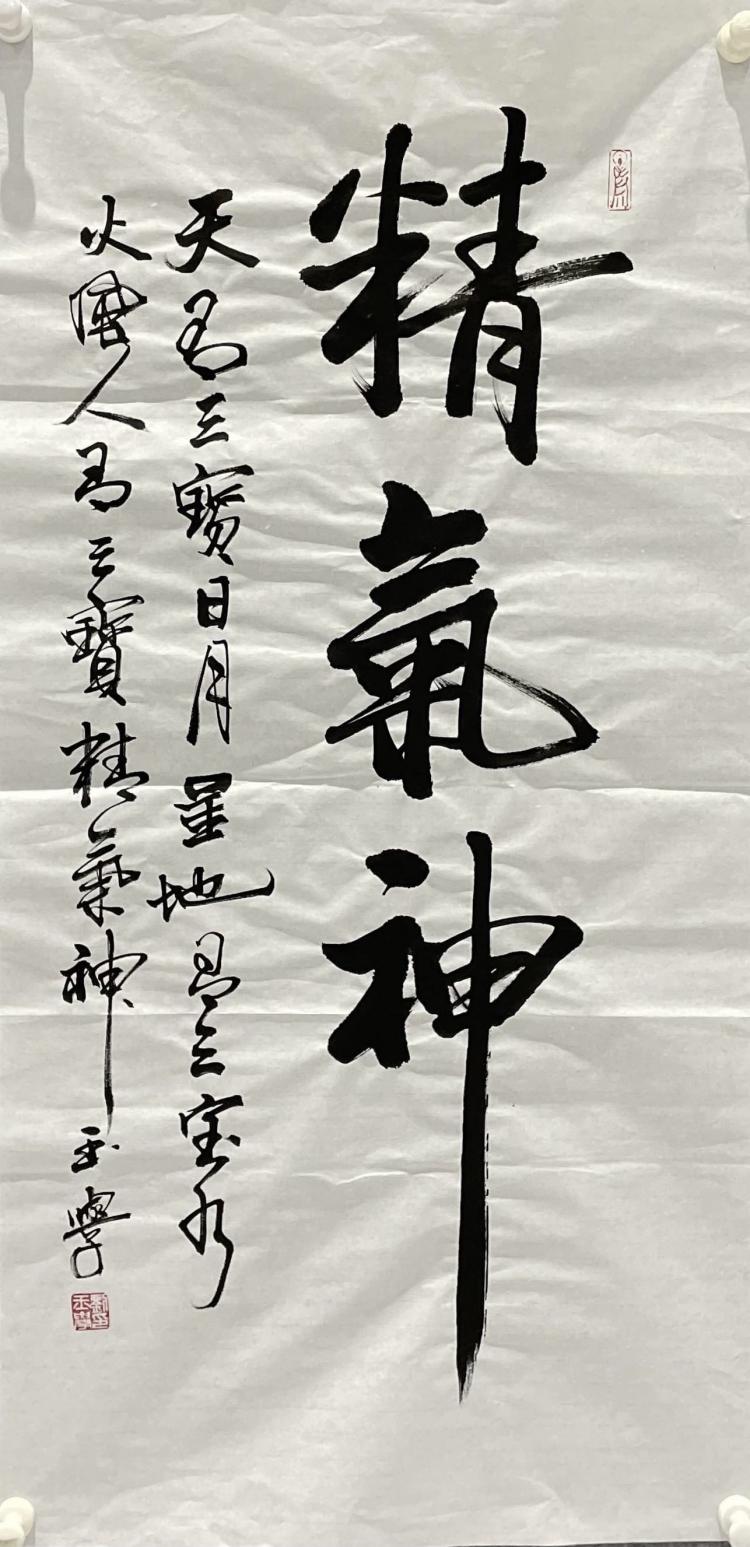 精氣神
天有三寶日月星地有三宝水
火風人有三寶精氣神 玉學